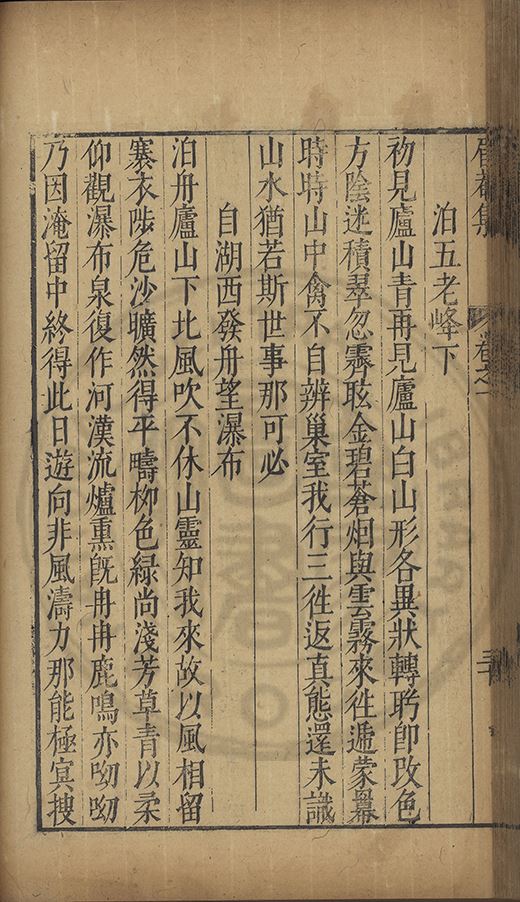 泊五老峰下
初見廬山青再見廬山白山形各異狀轉眄即改色
方陰迷積翠忽霽眩金碧蒼烟與雲霧來徃遞蒙羃
時時山中禽不自辨巢室我行三徃返真態還未識
山水猶若斯世事那可必
自湖西發舟望瀑布
泊舟廬山下北風吹不休山靈知我來故以風相留
褰衣陟危沙曠然得平疇栁色緑尚淺芳草青以柔
仰觀瀑布泉復作河漢流爐熏旣冉冉鹿鳴亦呦呦
乃因淹留中終得此日遊向非風濤力那能極冥搜